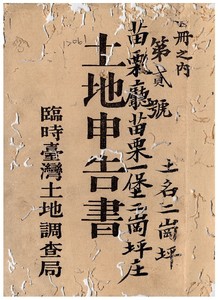 冊之內
第貳號
土名二崗坪
苗栗廳苗栗堡二崗坪庄
土地申告書
臨時臺灣土地調查局